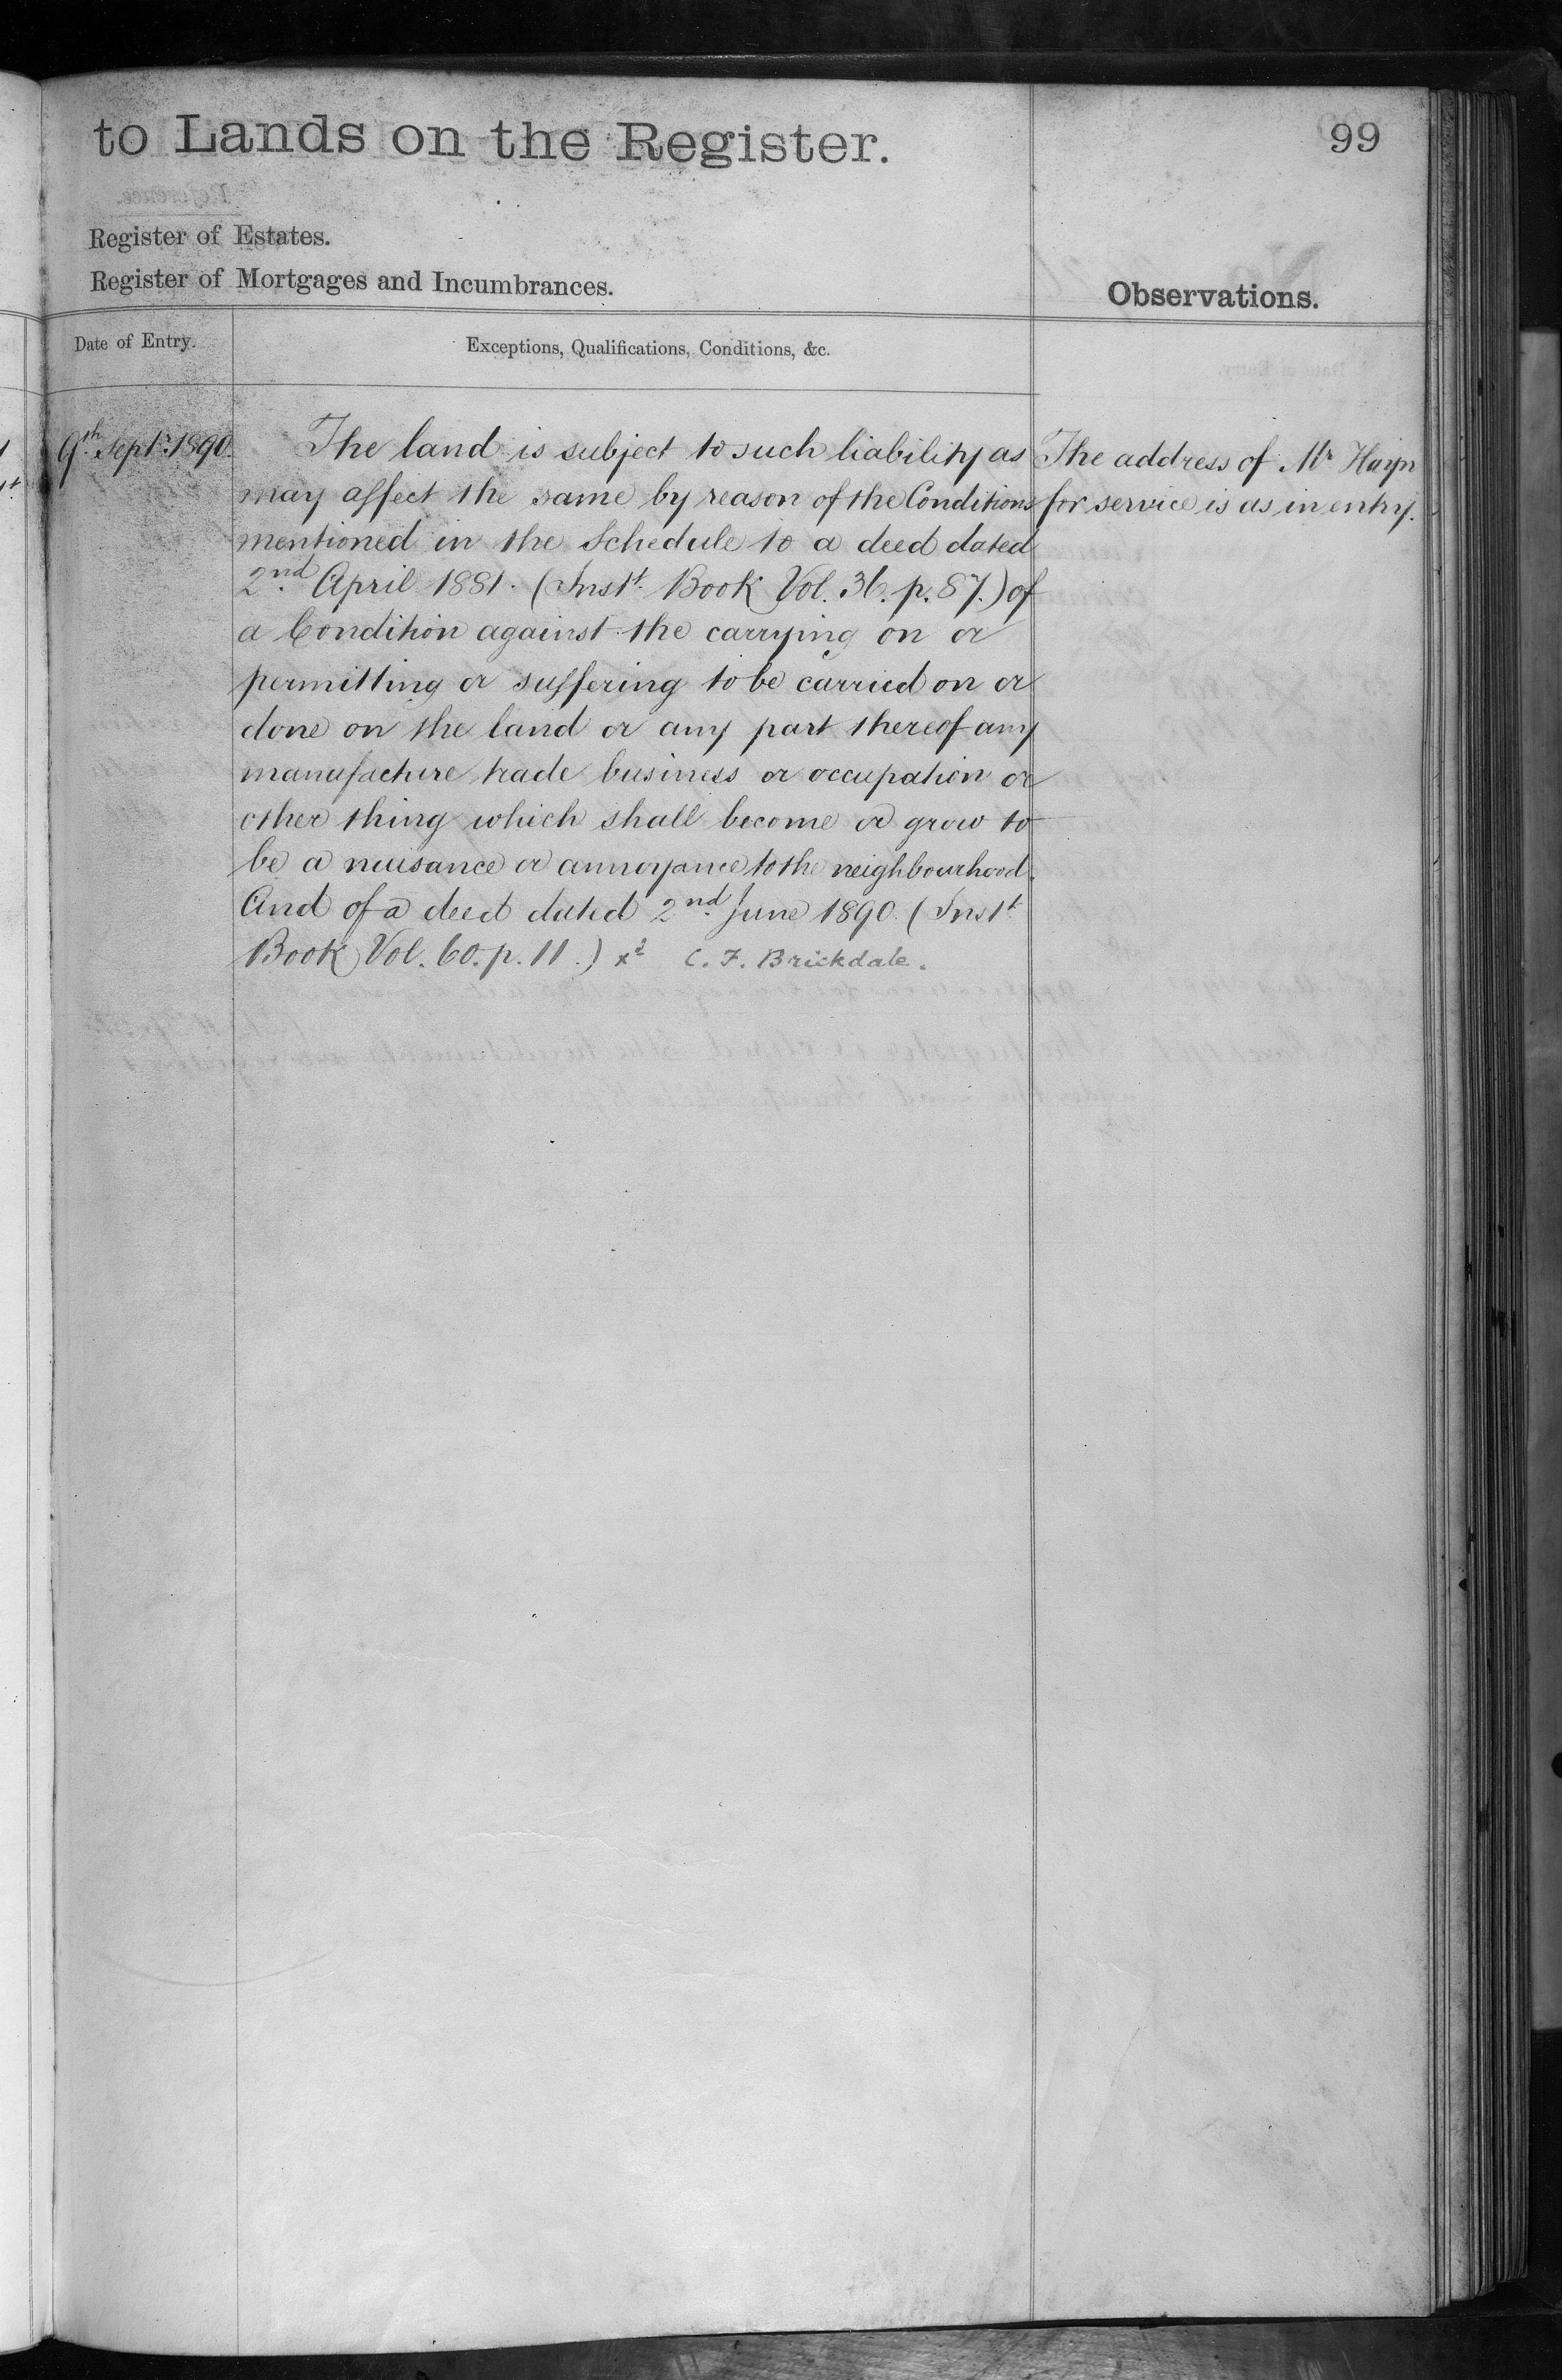 to Lands on the Register.
99
Register of Estates.
Register of Mortgages and Incumbrances.
Observations.
Date of Entry.
Exceptions, Qualifications, Conditions, &c.
9th Septr. 1890.
The land is subject to such liability as
may affect the same by reason of the Conditions
mentioned in the Schedule to a deed dated
2nd April 1881. (Inst. Book Vol. 36. p. 87.) of
a Condition against the carrying on or
permitting or suffering to be carried on or
done on the land or any part thereof any
manufacture trade business or occupation or
other thing which shall become or grow to
be a nuisance or annoyance to the neighbourhood.
And of a deed dated 2nd June 1890. (Inst.
Book Vol. 60. p. 11.) x² C. F. Brickdale.
The address of Mr
for service is as in entry.